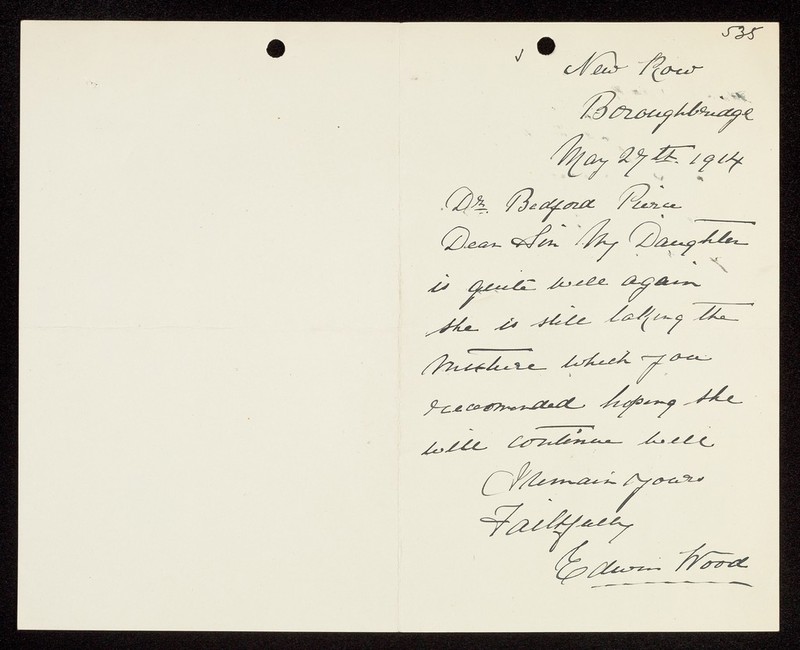 535
New Row
Boroughbridge
May 27th. 1914
Dr. Bedford Pierce
Dear Sir My Daughter
is quite well again
she is still taking the
Mixture which you
reccomended hoping she
will continue well
I Remain Yours
Faithfully
Edwin Wood